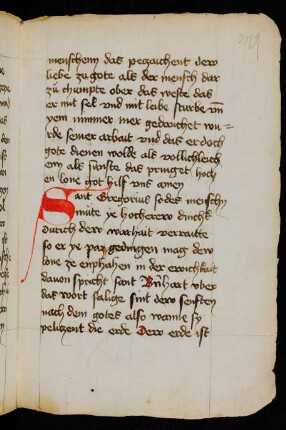 menschenn das pezaichent dew
liebe zu gote als der mensch dar
zu chumpte ober das weste das
er mit sel vnd mit leibe sturbe vnd
ym nimmer mer gedanchet wu=
rde seiner arbait vnd das er doch
gote dienen wolde als vollichleich
em als sunste das pringet hoch
en lone got hilf vns amen
Sant Gregorius so des menschn
mute ye hocherew dinckh
durich dew warhait verratte
so er ye paz gedingen mag dew
lone ze enphahen in der ewichhait
dauon spricht sant Ekhart vber
das wort salige sint dew senften
nach dem gotes also wanne sy
pesiczent die erde Dew erde ist